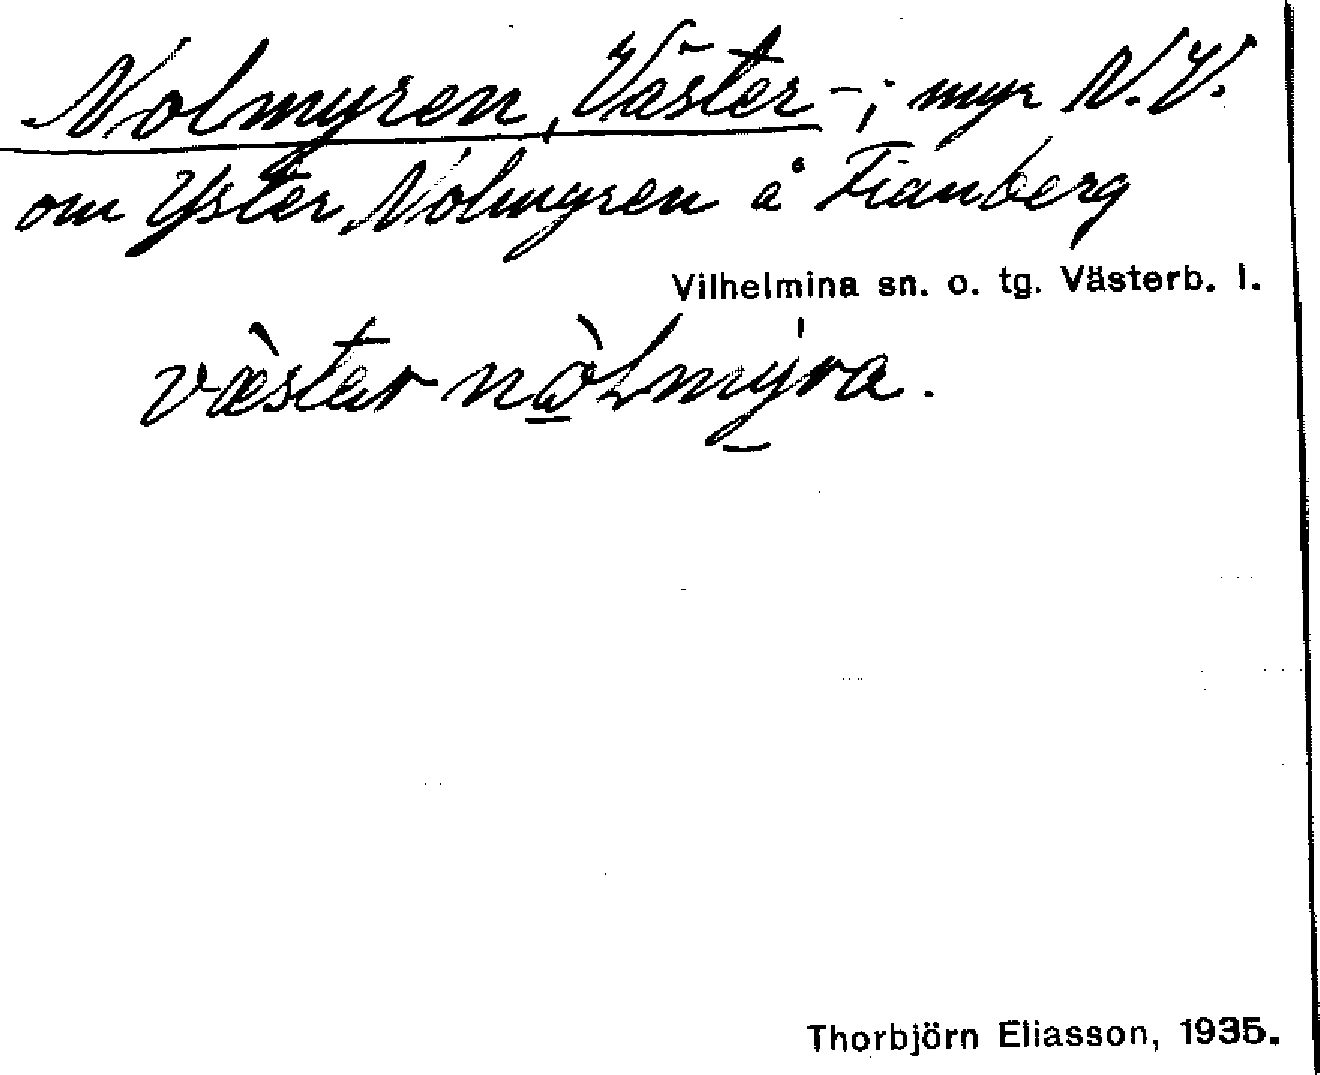 Nolmyren, Väster-; myr N.V.
om Yster Nolmyren å Fianberg
Vilhelmina sn. o. tg. Västerb. l.
væ̀star nò̱lmy̱ra.
Thorbjörn Eliasson, 1935.